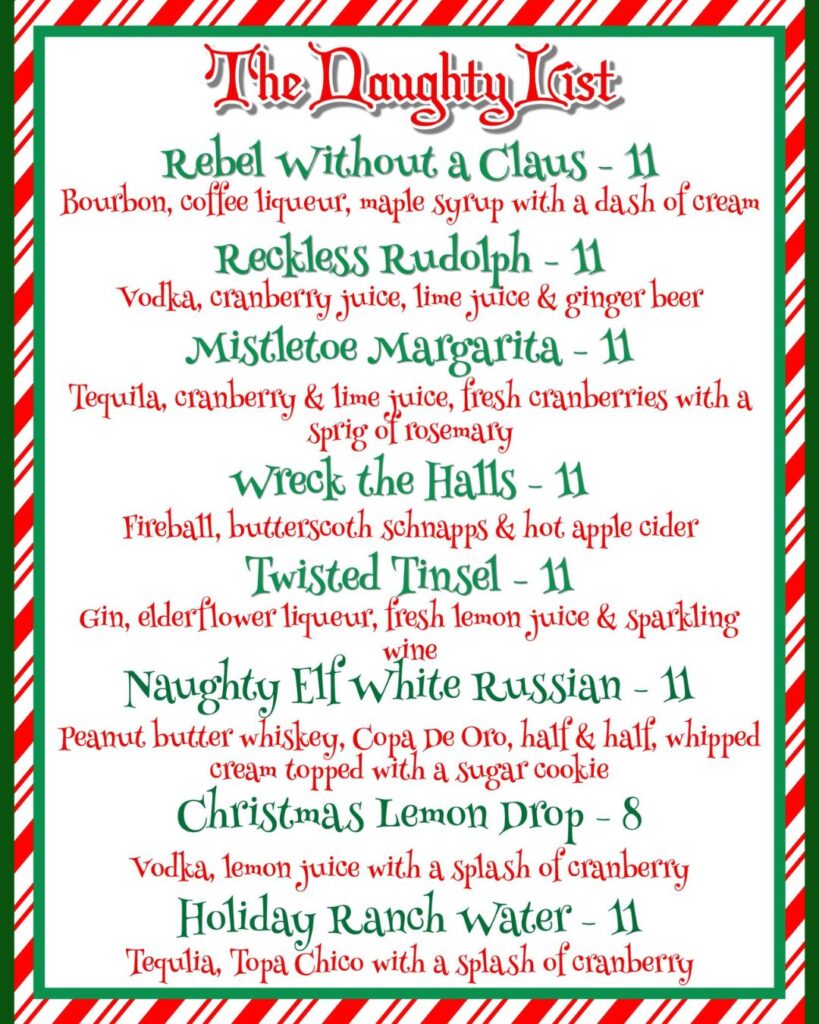 The Naughty List
Rebel Without a Claus - 11
Bourbon, coffee liqueur, maple syrup with a dash of cream
Reckless Rudolph - 11
Vodka, cranberry juice, lime juice & ginger beer
Mistletoe Margarita - 11
Tequila, cranberry & lime juice, fresh cranberries with a
sprig of rosemary
Wreck the Halls - 11
Fireball, butterscoth schnapps & hot apple cider
Twisted Tinsel - 11
Gin, elderflower liqueur, fresh lemon juice & sparkling
wine
Naughty Elf White Russian - 11
Peanut butter whiskey, Copa De Oro, half & half, whipped
cream topped with a sugar cookie
Christmas Lemon Drop - 8
Vodka, lemon juice with a splash of cranberry
Holiday Ranch Water - 11
Tequlia, Topa Chico with a splash of cranberry